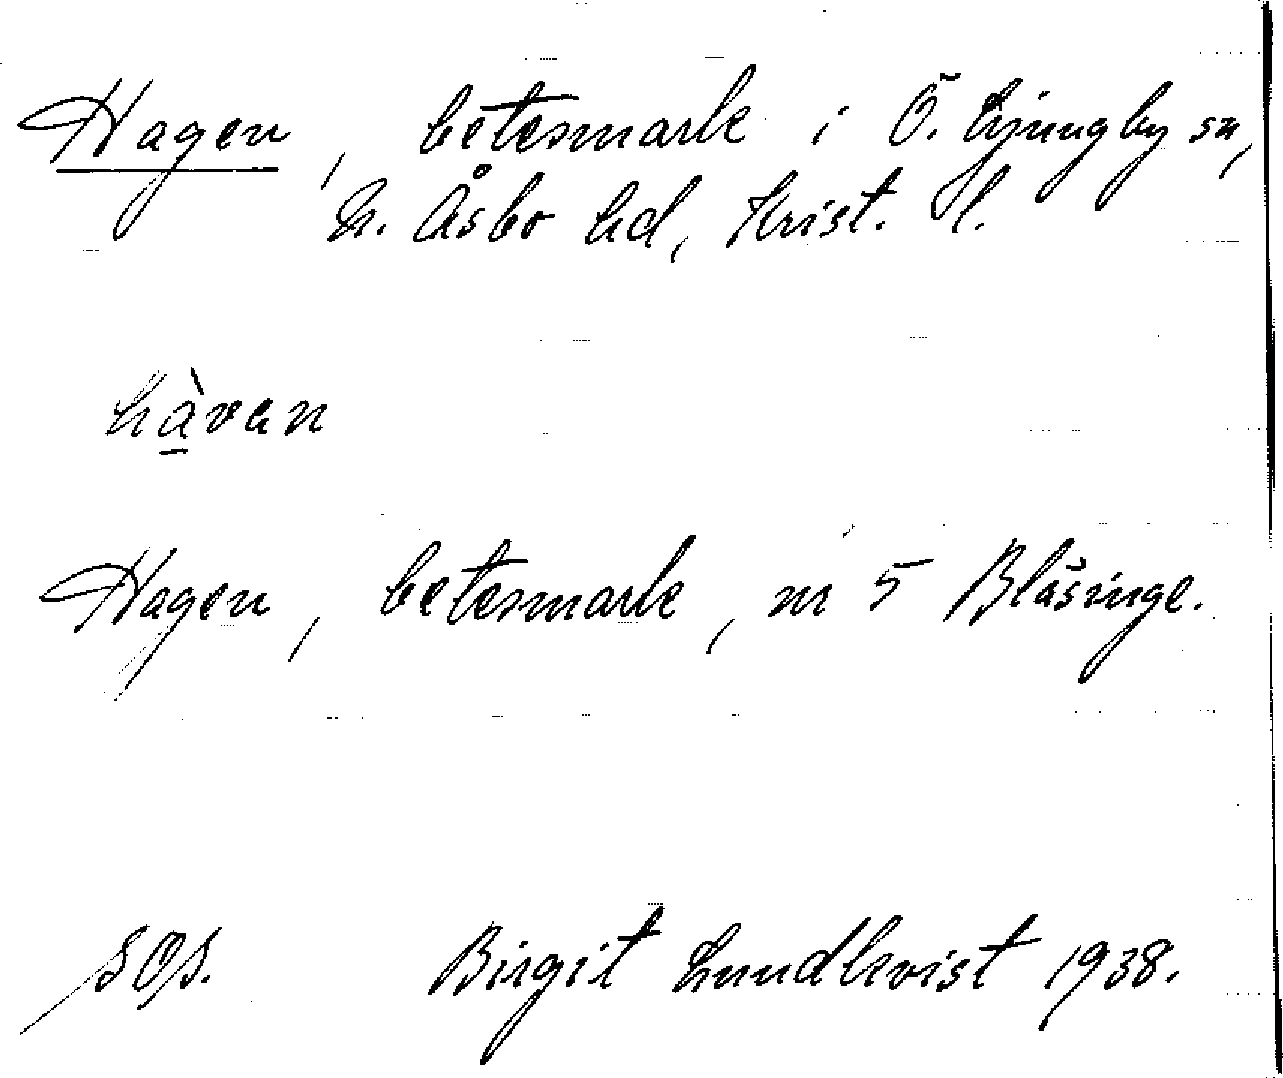 Hagen, betesmark i Ö. Ljungby sn,
N. Åsbo hd, Krist. l.
hàvan
Hagen, betesmark, nr 5 Blåsinge.
SOS. Birgit Lundkvist 1938.